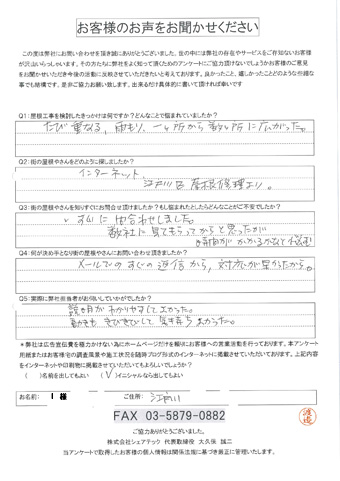 お客様のお声をお聞かせください
この度は弊社にお問い合わせを頂き誠にありがとうございました。世の中には弊社の存在やサービスをご存知ないお客様
が沢山いらっしゃいます。その方たちに弊社をよく知って頂くためのアンケートにご協力頂けないでしょうかお客様のご意見
をお聞かせいただき今後の活動に反映させていただきたいと考えております。良かったこと、嬉しかったことどのような些細な
事でも結構です。是非ご協力お願い致します。出来るだけ具体的に書いて頂ければ幸いです
Q1:屋根工事を検討したきっかけは何ですか?どんなことで悩まれていましたか?
たび重なる、雨もり、一ヶ所から数ヶ所に広がった。
Q2:街の屋根やさんをどのように探しましたか?
インターネット
江戸川区 屋根修理エリ。
Q3:街の屋根やさんを知りすぐにお問合せ頂けましたか?もし悩まれたとしたらどんなことがご不安でしたか?
すぐに問合わせしました。
数社に見てもらってからと思ったが
時間がかかるかなと悩む
Q4:何が決め手となり街の屋根やさんにお問い合わせ頂きましたか?
メールでのすぐの返信から,対応が早かったから。
Q5:実際に弊社担当者がお伺いしていかがでしたか?
説明がわかりやすくてよかった。
動きも きびきびして 気持ちよかった。
*弊社は広告宣伝費を極力かけない為にホームページだけを頼りにお客様への営業活動を行っております。本アンケート
用紙またはお客様宅の調査風景や施工状況を随時ブログ形式のインターネットに掲載させていただいております。上記内容
をインターネットや印刷物に掲載させていただいてもよろしいでしょうか?
( )名前を出してもよい (V)イニシャルなら出してもよい
お名前: I 様 ご住所: 江戸川
FAX 03-5879-0882
ご協力ありがとうございました。
株式会社シェアテック 代表取締役 大久保 誠二
当アンケートで取得したお客様の個人情報は関係法規に基づき厳正に管理いたします。